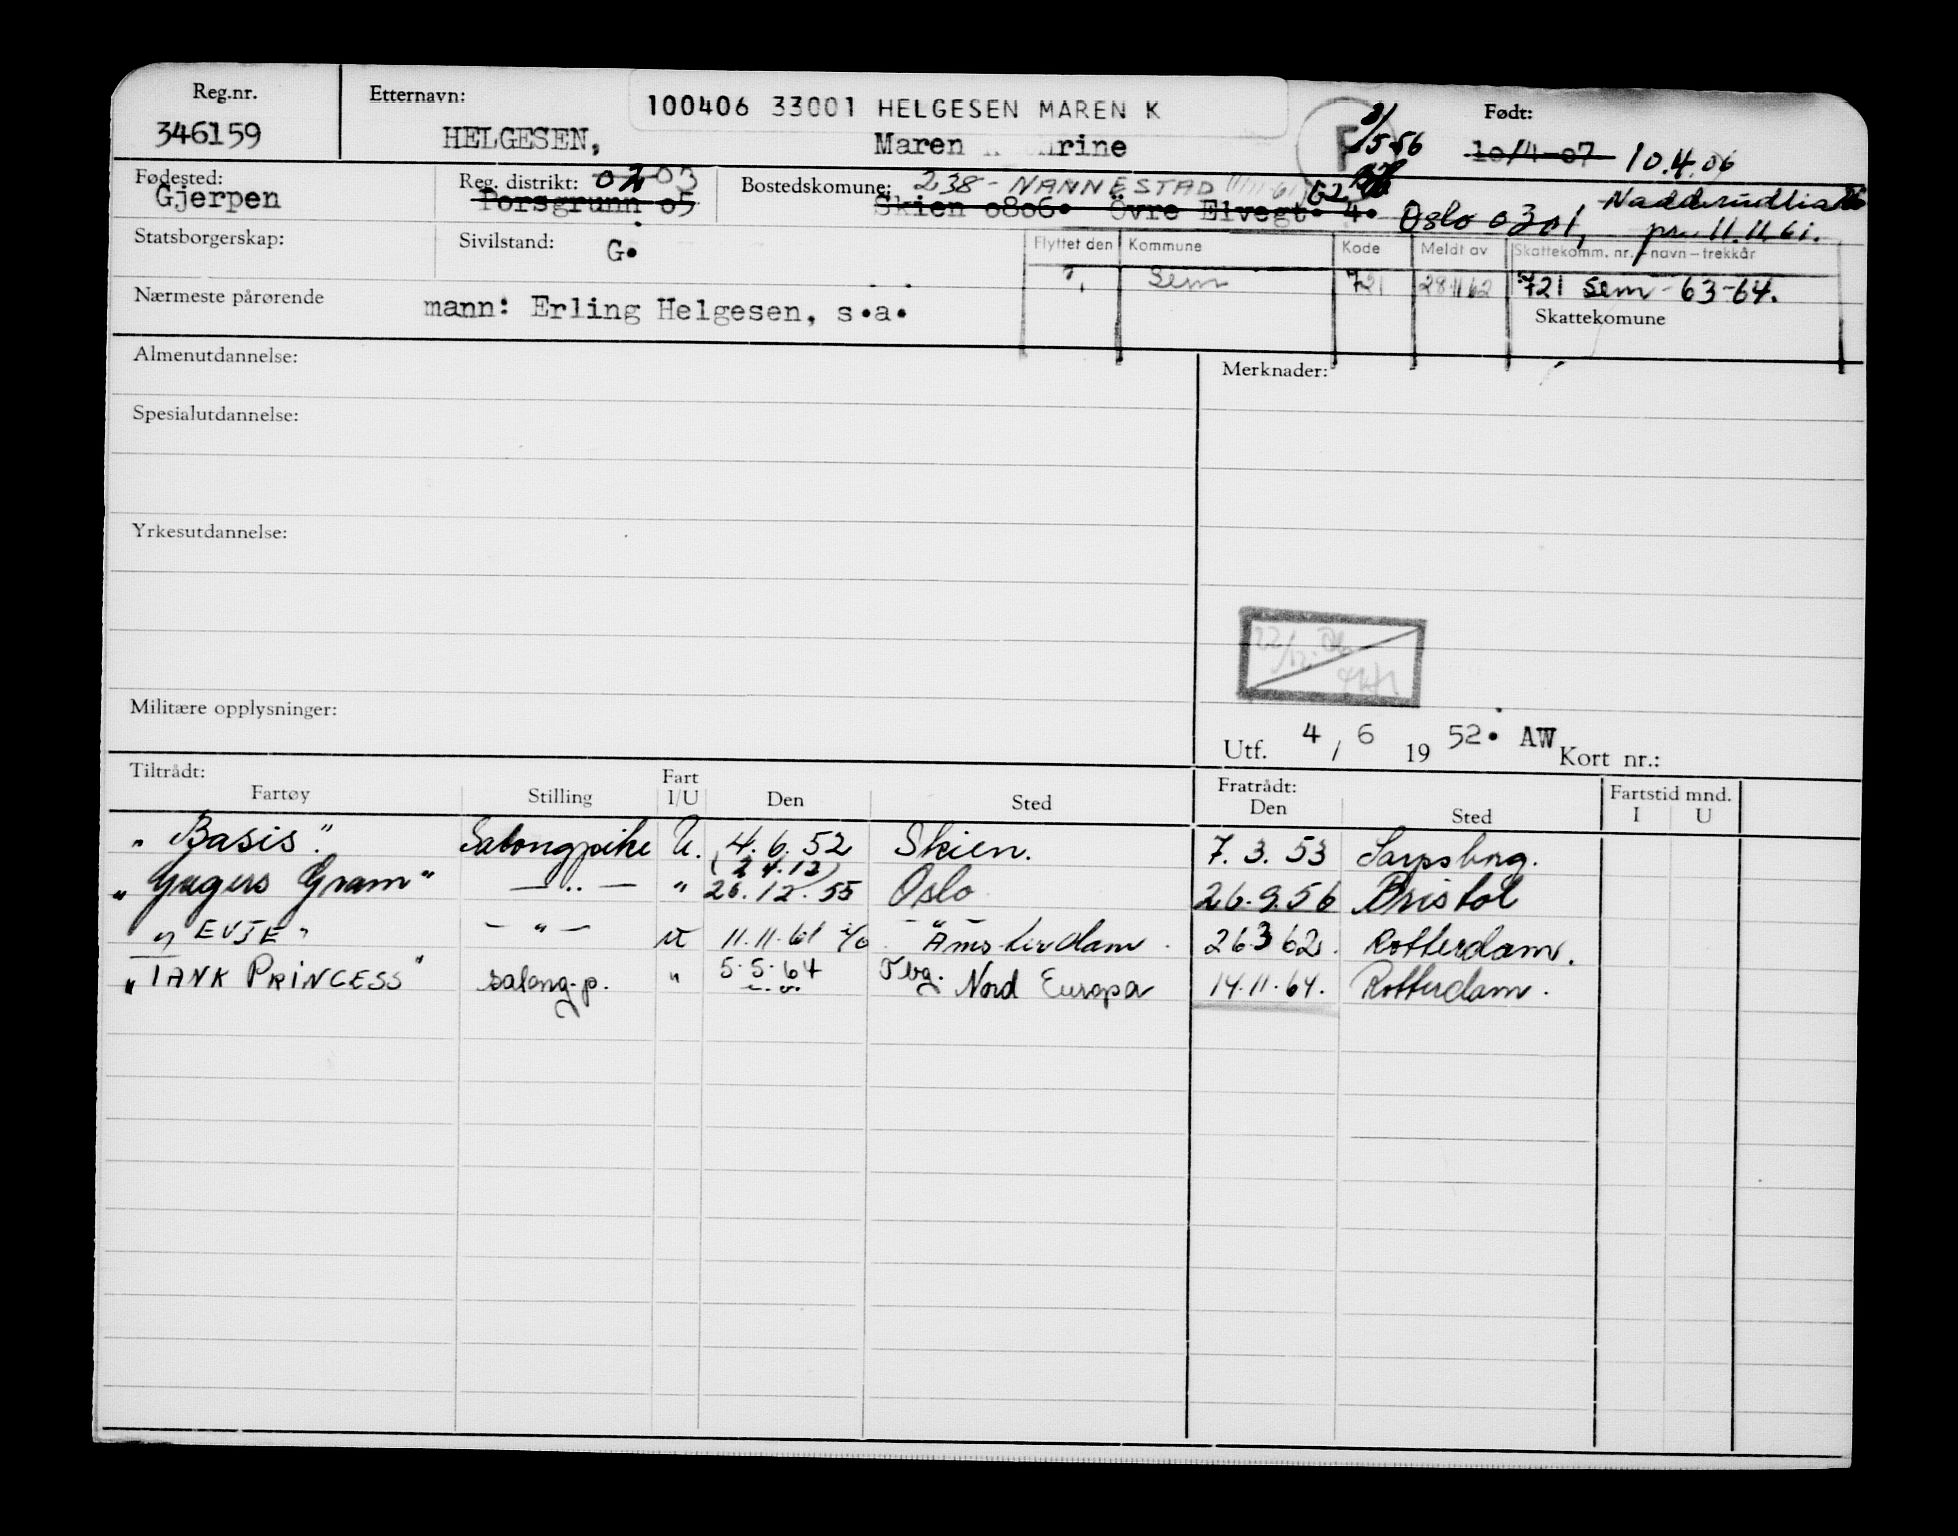 Reg.nr. Etternavn: 100406 33001 HELGESEN MAREN K Født:
346159 HELGESEN, Maren rine F 5-56 10/4-07 10.4.06
Fødested: Reg. distrikt: 03 Bostedskomune: 238 - NANNESTAD
Gjerpen Porsgrunn 05 Skien 0806. Övre Elvegt. 4. Oslo 0301, 11.11.61.
Statsborgerskap: Sivilstand: G. Flyttet den Kommune Kode Meldt av Skattekomm. nr. - navn - trekkår
Sem 721 28/11 62 721 Sem - 63-64.
Nærmeste pårørende mann: Erling Helgesen, s.a. Skattekomune
Almenutdannelse: Merknader:
Spesialutdannelse:
Yrkesutdannelse:
Militære opplysninger:
Utf. 4 / 6 19 52. AW Kort nr.:
Tiltrådt: Fart Fratrådt: Fartstid mnd.
Fartøy Stilling I/U Den Sted Den Sted I U
"Basis". Salongpike U. 4.6.52 Skien. 7.3.53 Sarpsborg.
(24.12)
"Gregers Gram" — " — " 26.12.55 Oslo 26.9.56 Bristol
"EVJE" — " — U 11.11.61 Amsterdam 26 3 62. Rotterdam.
"TANK PRINCESS" salong.p. " 5.5.64 Tbg. Nord Europa 14.11.64. Rotterdam.